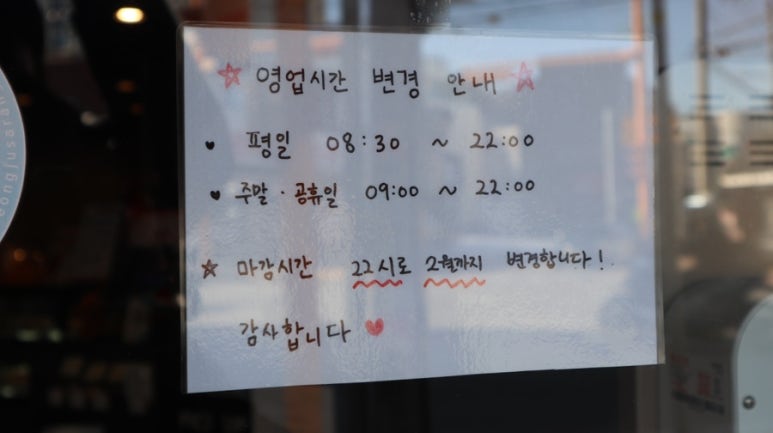 ☆ 영업시간 변경 안내 ☆
♥ 평일 08:30 ~ 22:00
♥ 주말·공휴일 09:00 ~ 22:00
☆ 마감시간 22시로 2월까지 변경합니다!
감사합니다 ♥